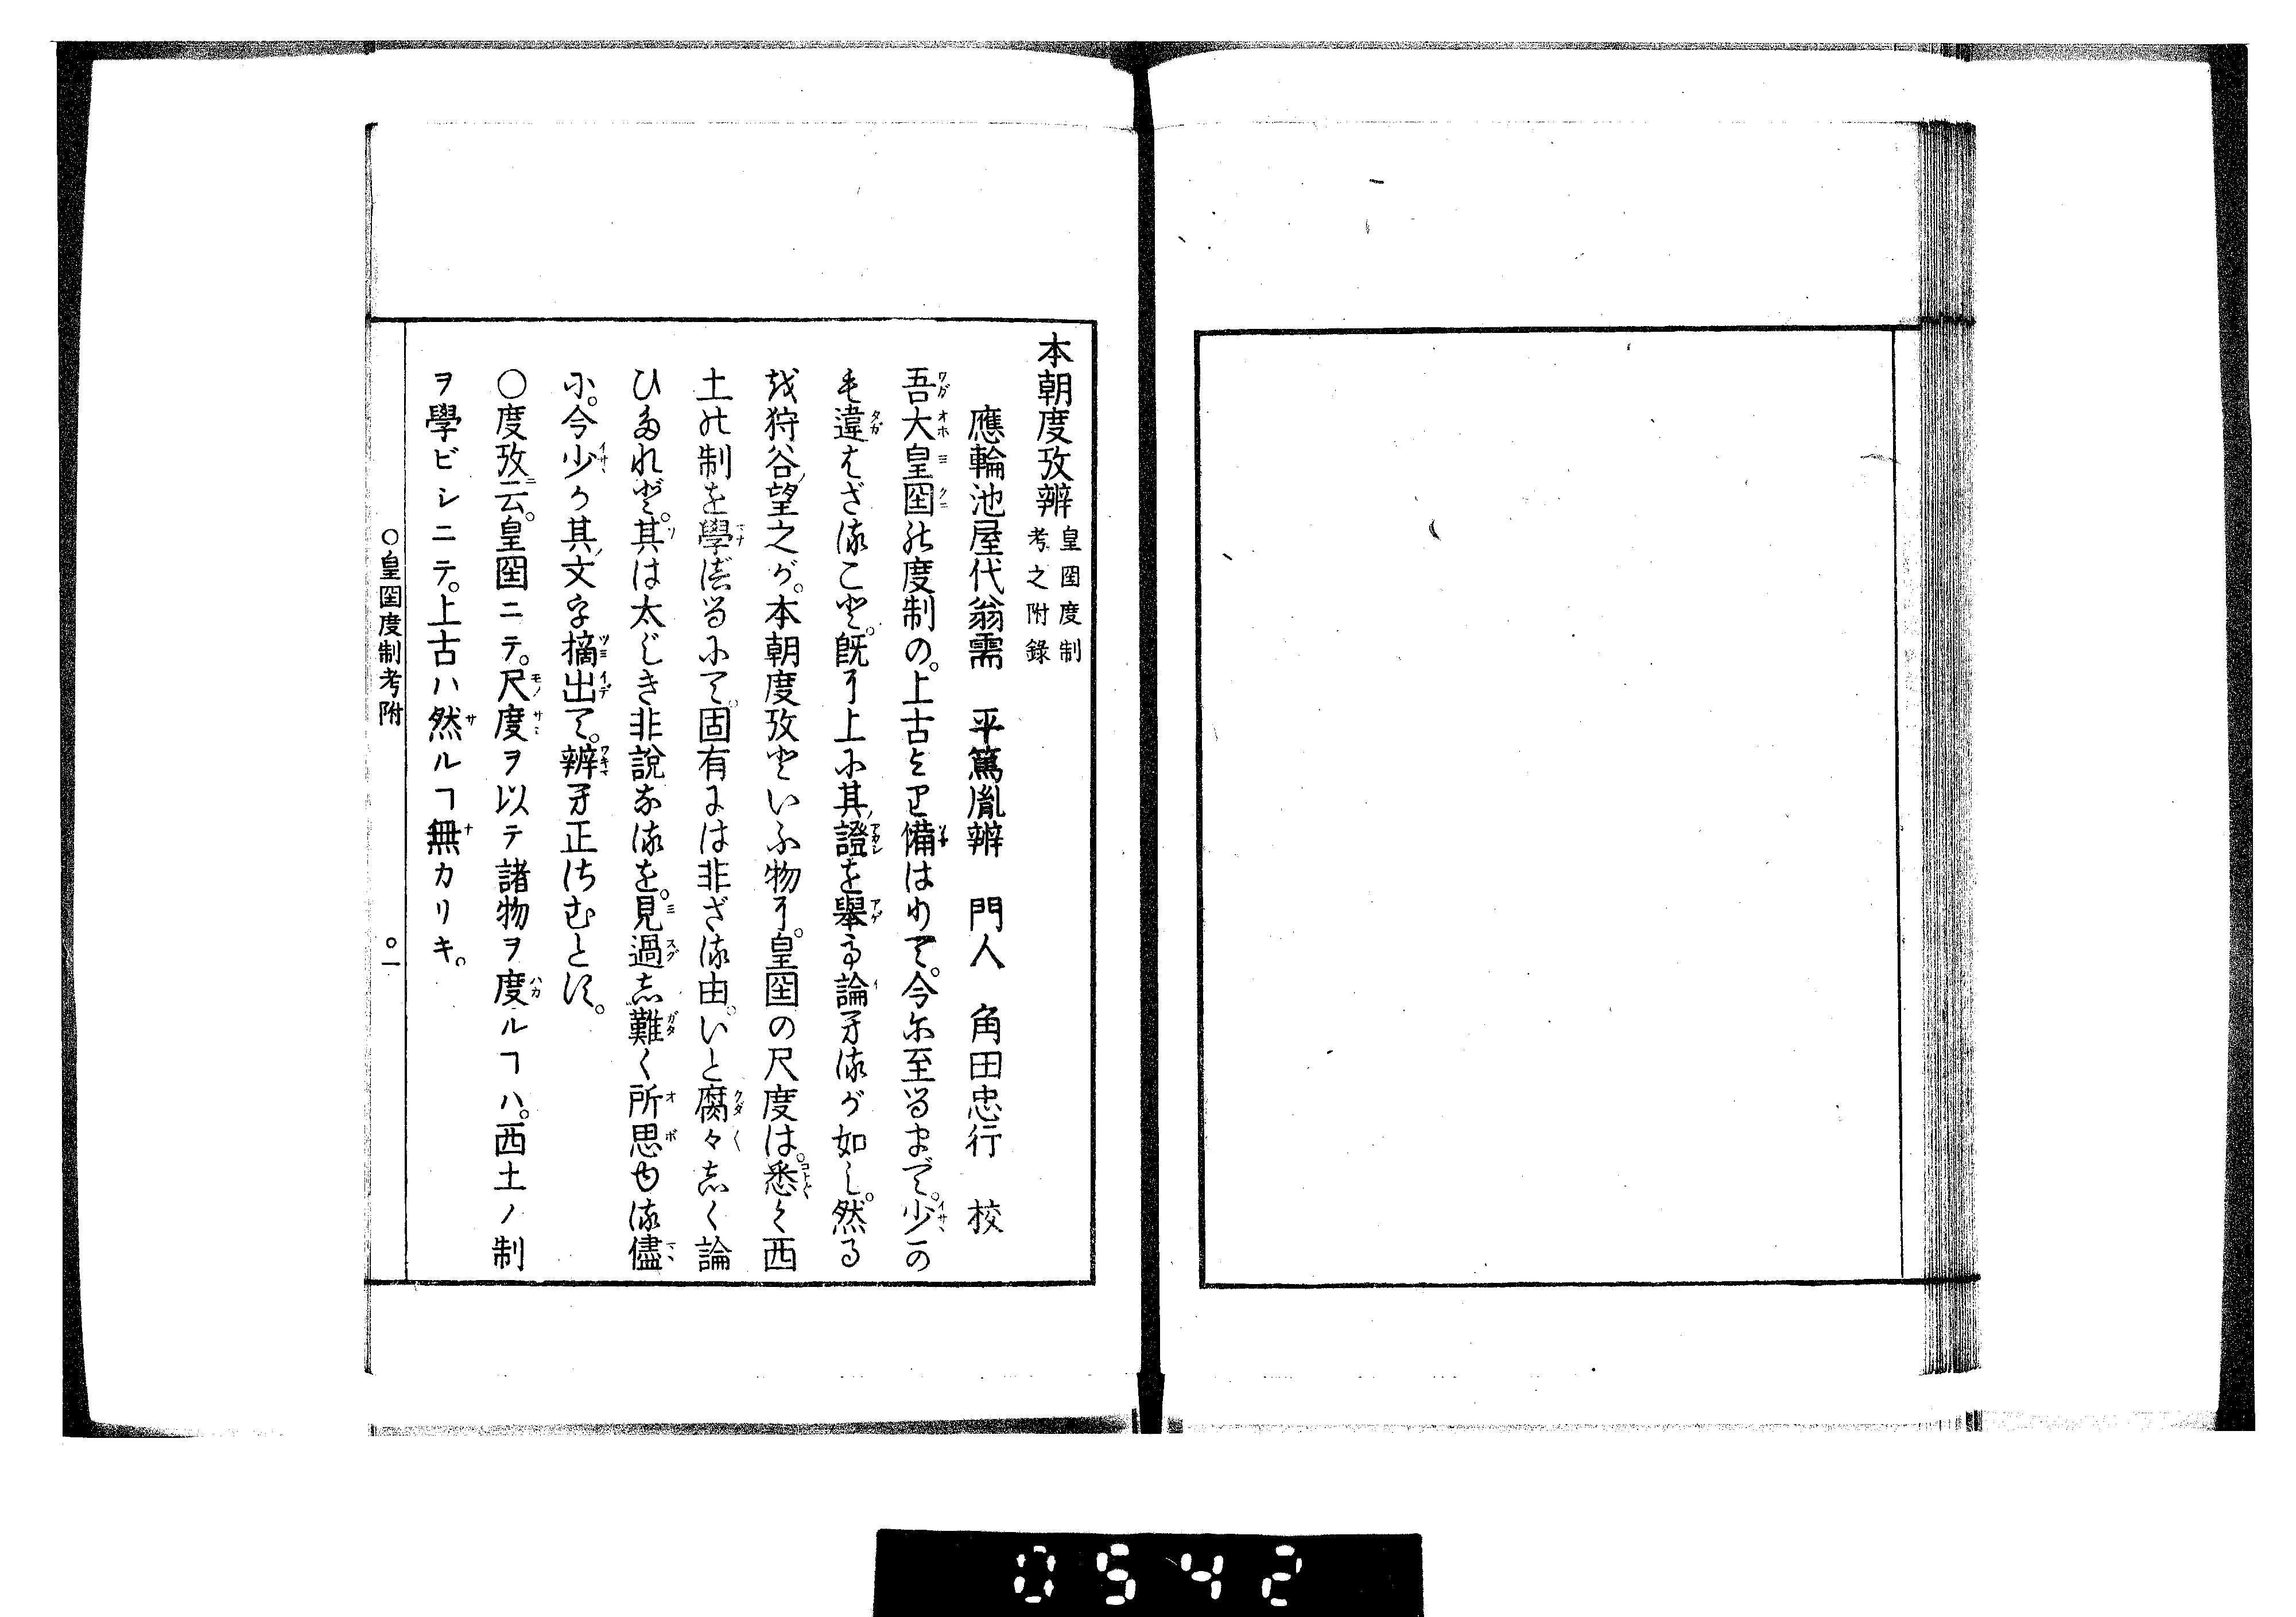 本朝度攷辨 皇圀度制考之附錄
應輪池屋代翁需 平篤胤辨 門人 角田忠行 校
吾大皇圀の度制の。上古より備はりて。今に至るまで。少の
も違はざることゞ。既に上に其證を擧て論するが如し。然る
を狩谷望之が。本朝度攷といふ物に。皇圀の尺度は。悉く西
土の制を學べるにて。固有には非ざる由。いと腐々しく論
ひたれど。其は太じき非說なるを。見過し難く所思ゆる儘
に。今少か其文字摘出て。辨へ正さむとす。
〇度攷云。皇圀ニテ。尺度ヲ以テ諸物ヲ度ルヿハ。西土ノ制
ヲ學ビシニテ。上古ハ然ルヿ無カリキ。
〇皇圀度制考附 〇一
0542